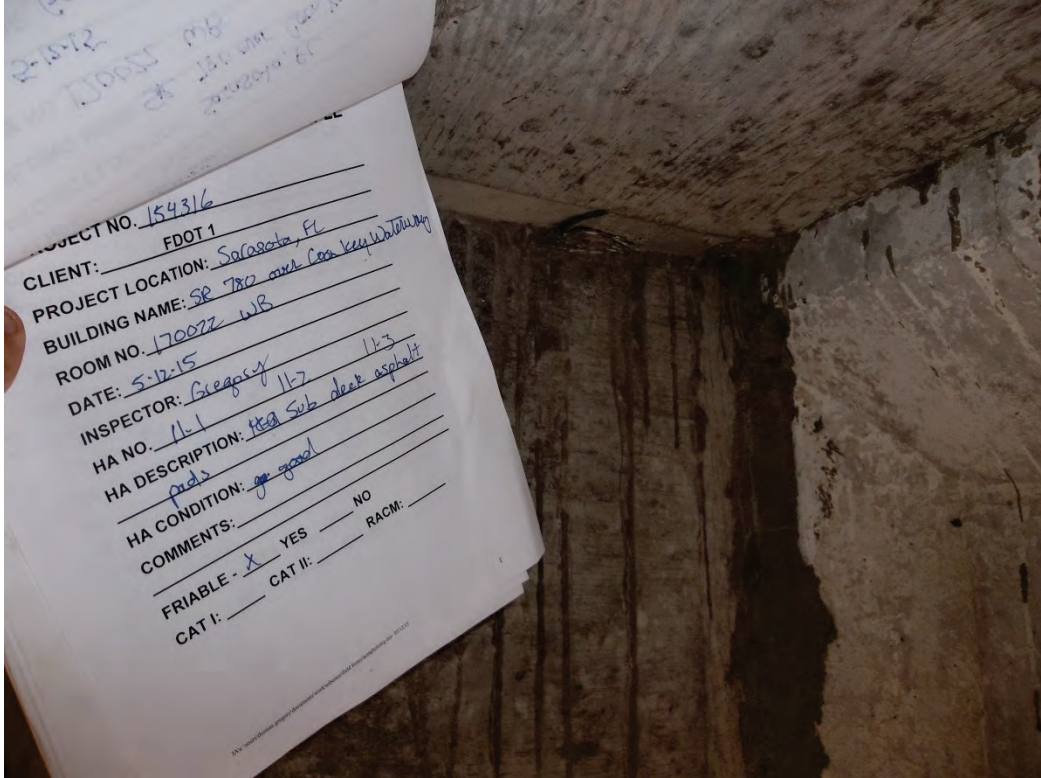 2-12-12
PROJECT NO. 154316
CLIENT: FDOT 1
PROJECT LOCATION: Sarasota, FL
BUILDING NAME: SR 780 over Coon Key Waterway
ROOM NO. 170022 WB
DATE: 5-12-15
INSPECTOR: Gregory
HA NO. 11-1 11-2 11-3
HA DESCRIPTION: Sub deck asphalt
pads
HA CONDITION: good
COMMENTS:
FRIABLE - X YES NO
CAT I: CAT II: RACM: